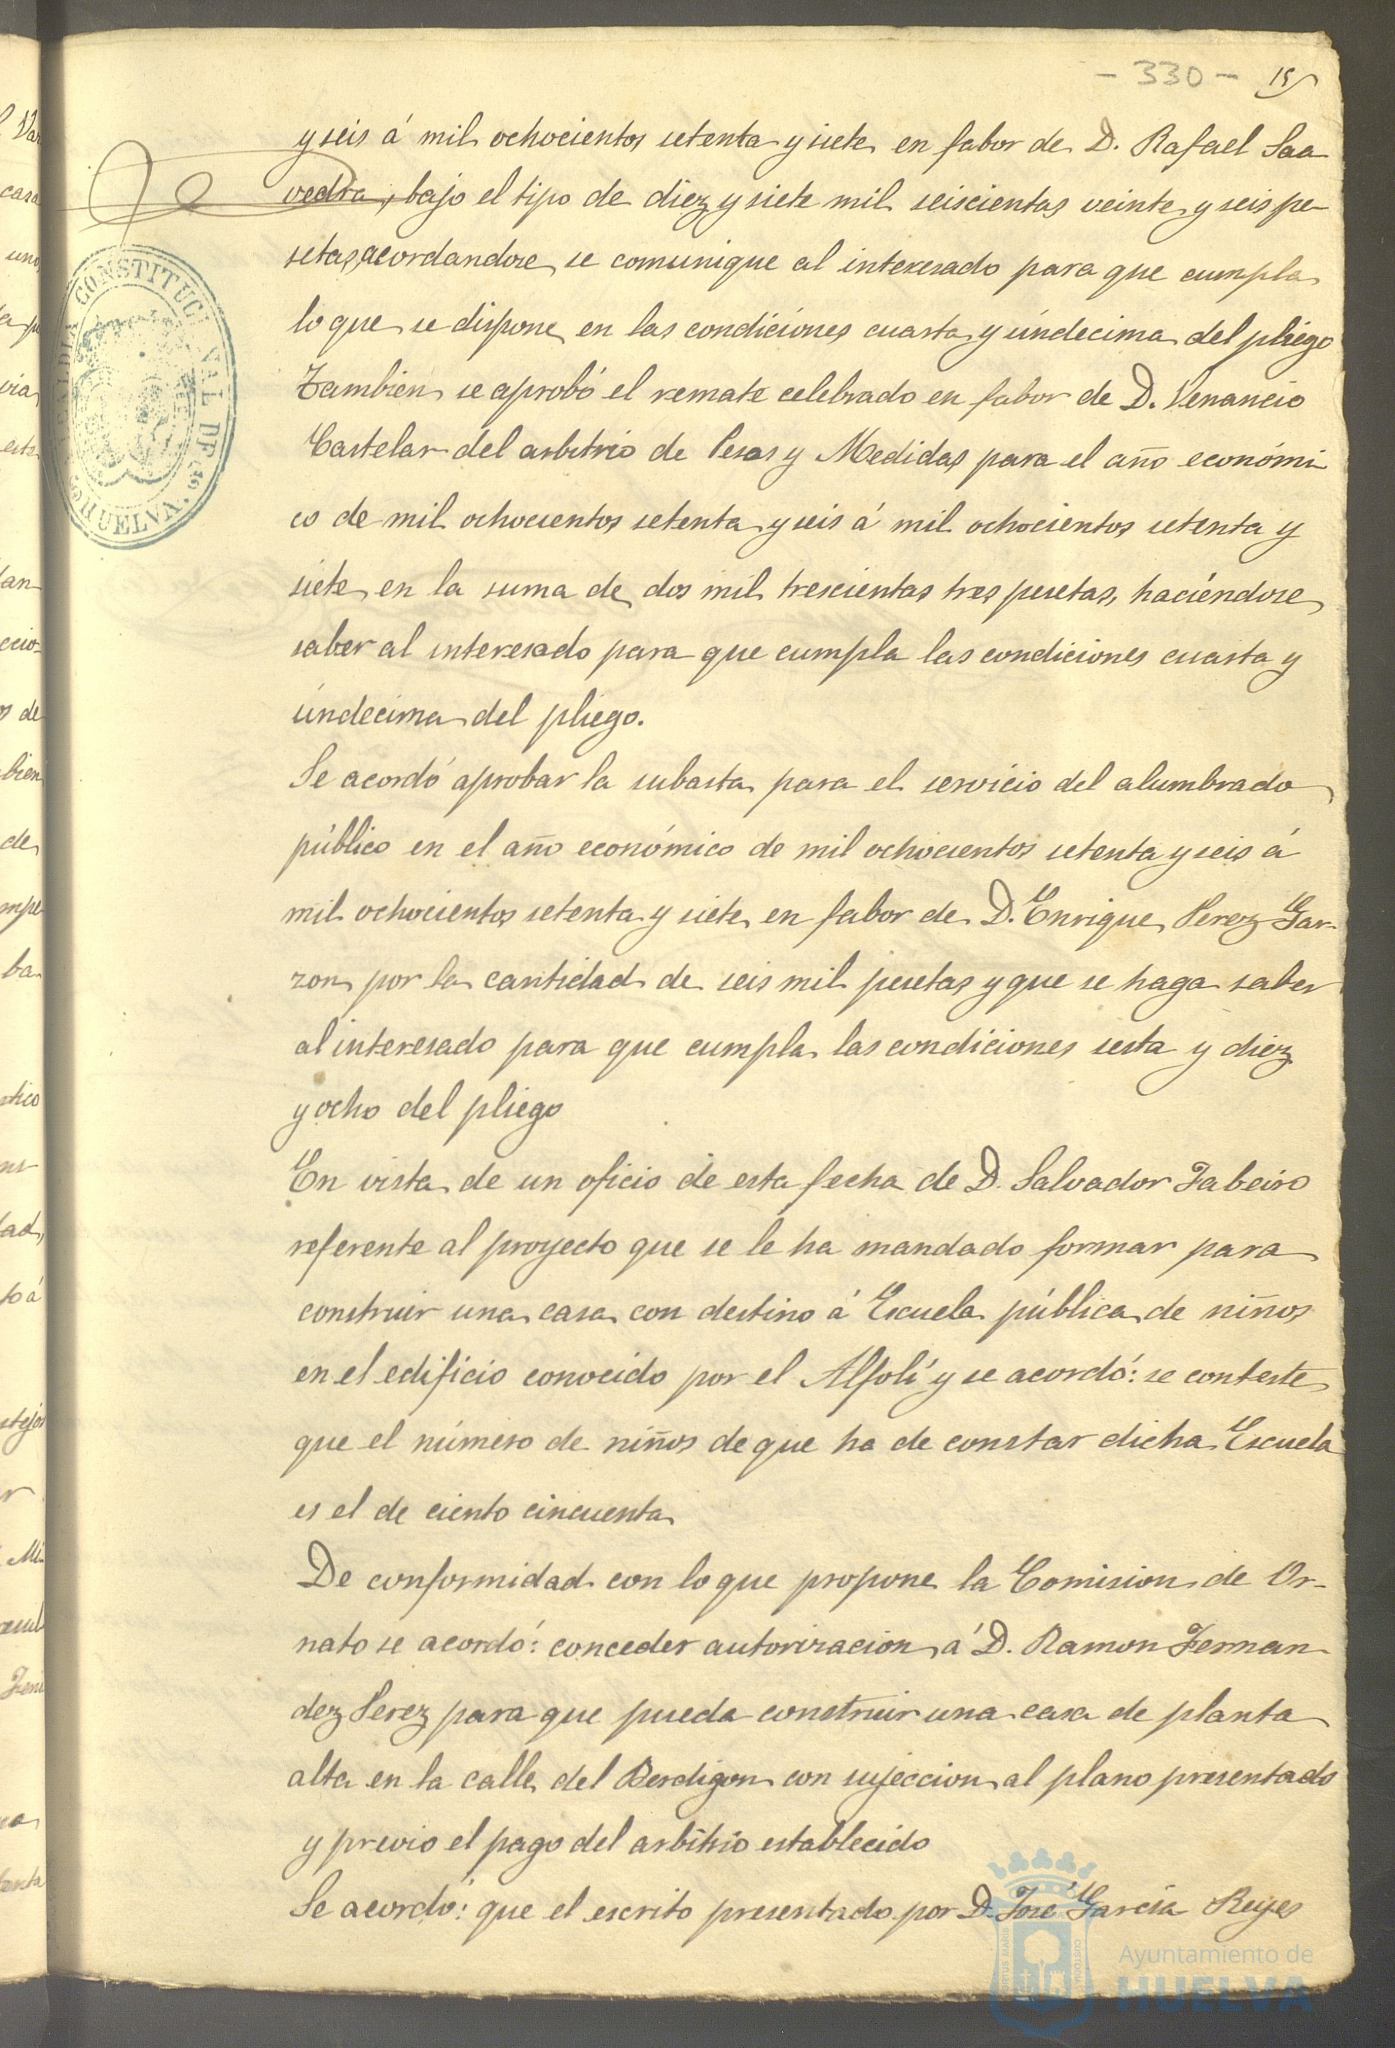 - 330 -
y seis á mil ochocientos setenta y siete en fabor de D. Rafael Saa
vedra, bajo el tipo de diez y siete mil seiscientas veinte y seis pe-
setas, acordandose se comunique al interesado para que cumpla
lo que se dispone en las condiciones cuarta y úndecima del pliego
Tambien se aprobó el remate celebrado en fabor de D. Venancio
Castelar del arbitrio de Pesas y Medidas para el año económi
co de mil ochocientos setenta y seis á mil ochocientos setenta y
siete en la suma de dos mil trescientas tres pesetas, haciéndose
saber al interesado para que cumpla las condiciones cuarta y
úndecima del pliego.
Se acordó aprobar la subasta para el servicio del alumbrado
público en el año económico de mil ochocientos setenta y seis á
mil ochocientos setenta y siete en fabor de D. Enrique Perez Gar-
zon por la cantidad de seis mil pesetas y que se haga saber
al interesado para que cumpla las condiciones sesta y diez
y ocho del pliego
En vista de un oficio de esta fecha de D. Salvador Fabeiro
referente al proyecto que se le ha mandado formar para
construir una casa con destino á Escuela pública de niños
en el edificio conocido por el Alfolí y se acordó: se conteste
que el número de niños de que ha de constar dicha Escuela
es el de ciento cincuenta
De conformidad con lo que propone la Comision de Or-
nato se acordó: conceder autorizacion á D. Ramon Fernan-
dez Perez para que pueda construir una casa de planta
alta en la calle del Berdigon con sujeccion al plano presentado
y previo el pago del arbitrio establecido
Se acordó: que el escrito presentado por D. José García Reyes
ALCALDIA CONSTITUCIONAL DE HUELVA
Ayuntamiento de
HUELVA